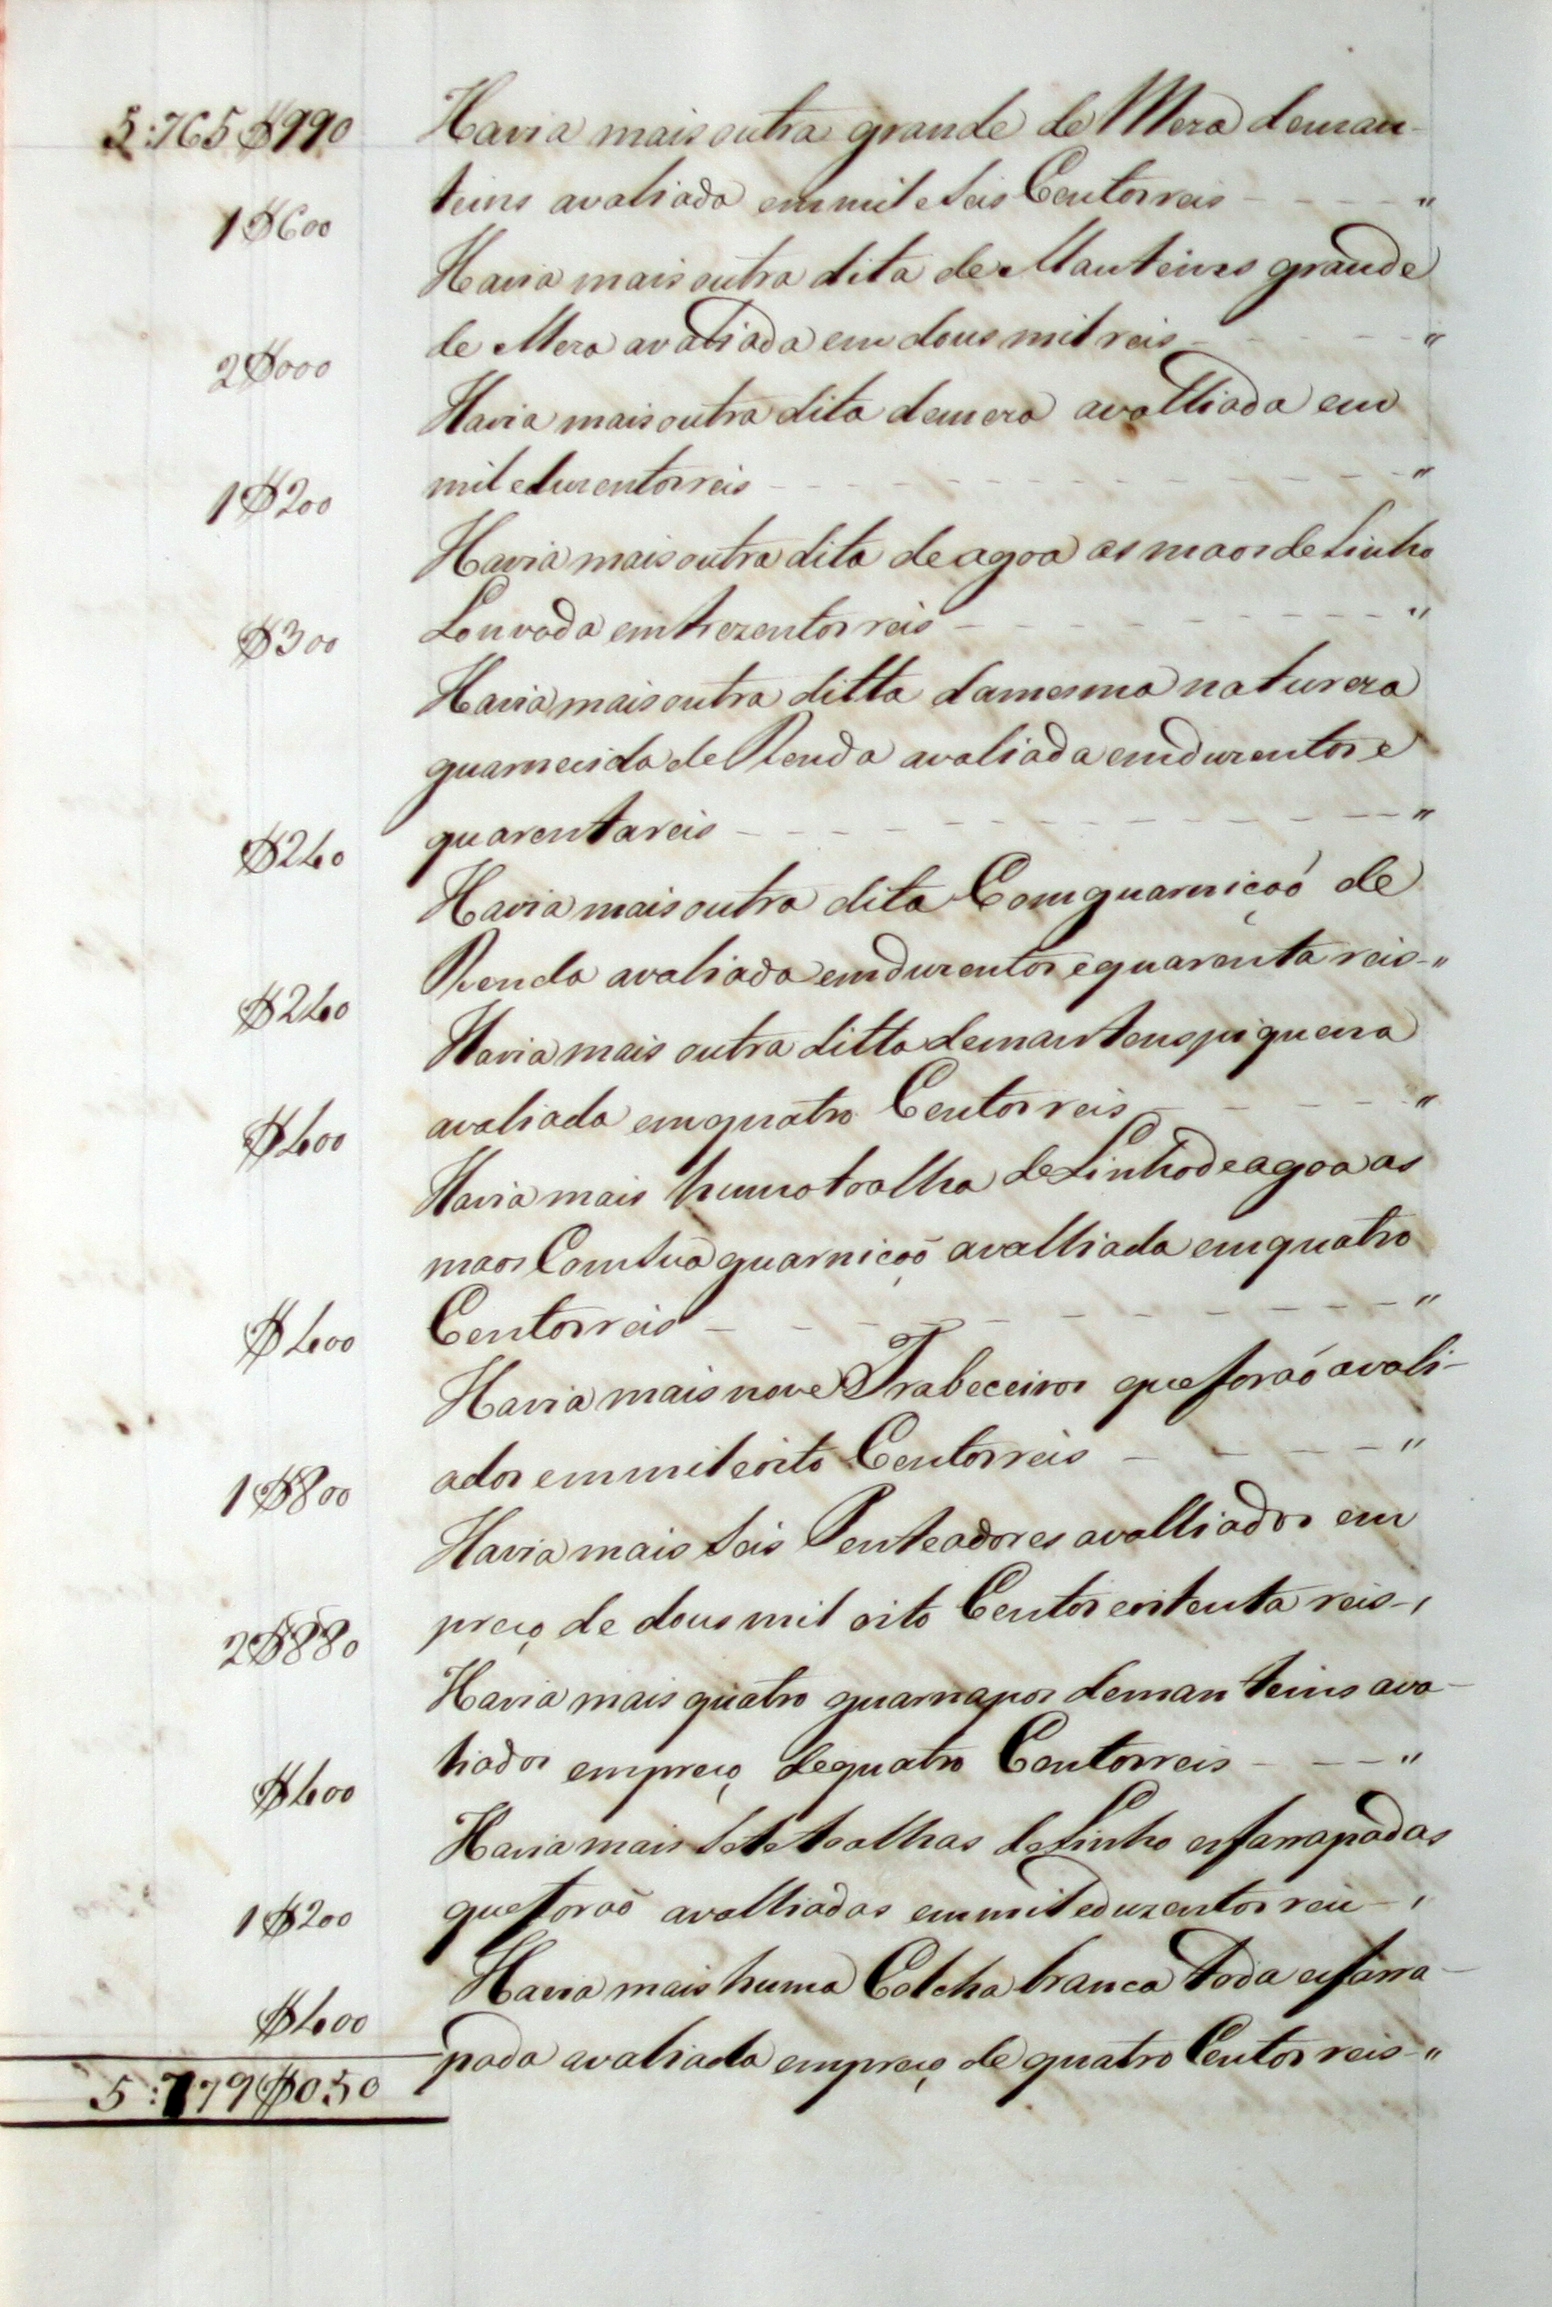 5:765$990 Havia mais outra grande de Meza deman-
teins avaliada em mil e seis Centos reis - - - - "
1$600
Havia mais outra dita de Manteins grande
de Meza avaliada em dous mil reis - - - - "
2$000
Havia mais outra dita de meza avalliada em
mil e duzentos reis - - - - "
1$200
Havia mais outra dita de agoa as maos de Linho
Louvada em trezentos reis - - - - "
$300
Havia mais outra ditta da mesma natureza
guarnecida de Renda avaliada em duzentos e
quarenta reis - - - - "
$240
Havia mais outra dita Com guarniçaó de
Renda avaliada em duzentos e quarenta reis - "
$240
Havia mais outra ditta de mantens piquena
avaliada em quatro Centos reis - - - "
$400
Havia mais huma toalha de Linho de agoa as
maos Com sua guarniçaõ avalliada em quatro
Centos reis - - - - "
$400
Havia mais nove Trabeceiros que foraó avali-
ados em mil e oito Centos reis - - - - "
1$800
Havia mais seis Penteadores avalliados em
preço de dous mil oito Centos e oitenta reis - ,
2$880
Havia mais quatro guarnapos de manteins ava-
liados em preço de quatro Centos reis - - - "
$400
Havia mais sete toalhas de Linho esfarrapadas
que foraõ avalliadas em mil e duzentos reis - ,
1$200
Havia mais huma Colcha branca toda esfarra-
pada avaliada em preço de quatro Centos reis - "
$400
5:779$050